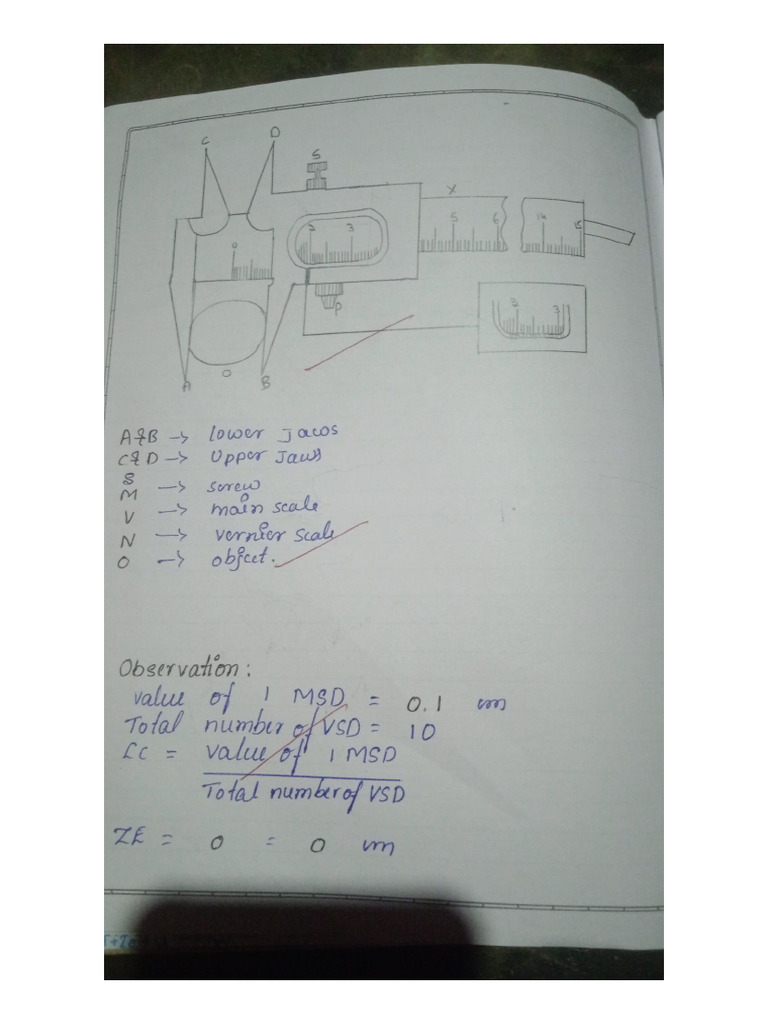 C D
S
X
0 2 3 5 6 14 15
P
2 3
O
A B
A&B → lower Jaws
C&D → Upper Jaws
S → screw
M → main scale
V → vernier scale
N
O → object.
Observation:
value of 1 MSD = 0.1 cm
Total number of VSD = 10
LC = value of 1 MSD
Total number of VSD
ZE = 0 = 0 cm